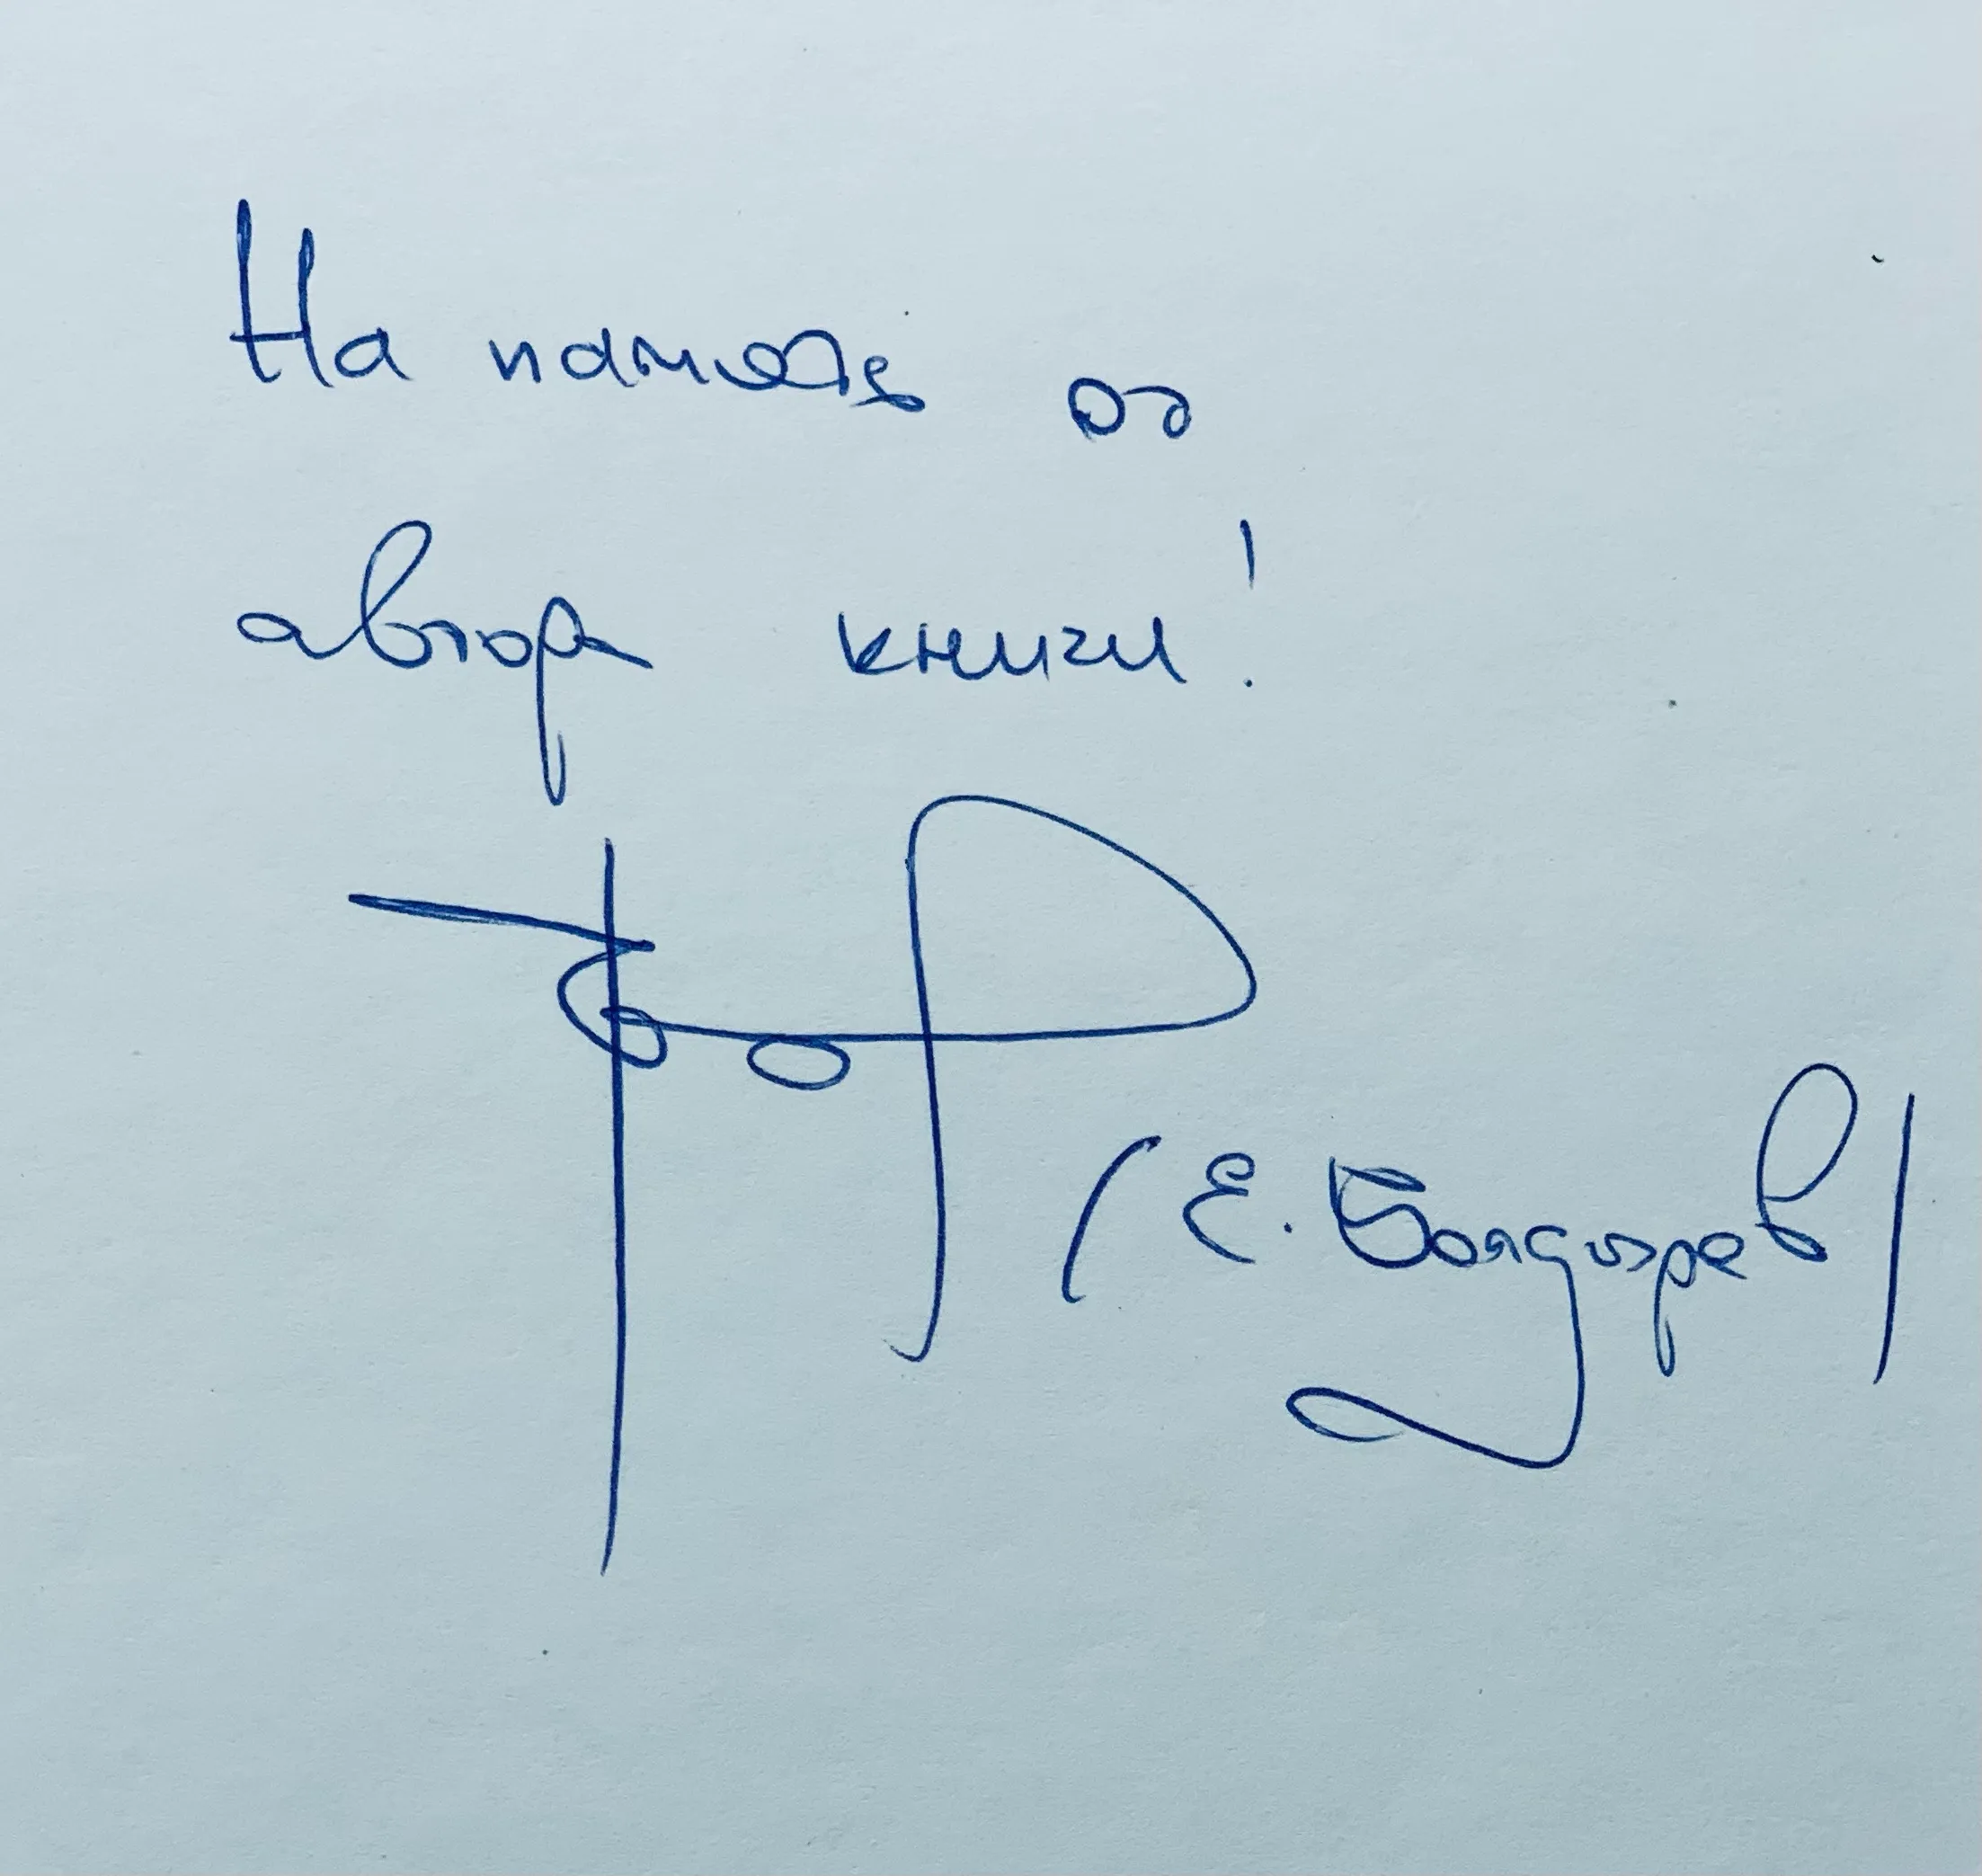 На память от
автора книги!
(Е. Болдырев)